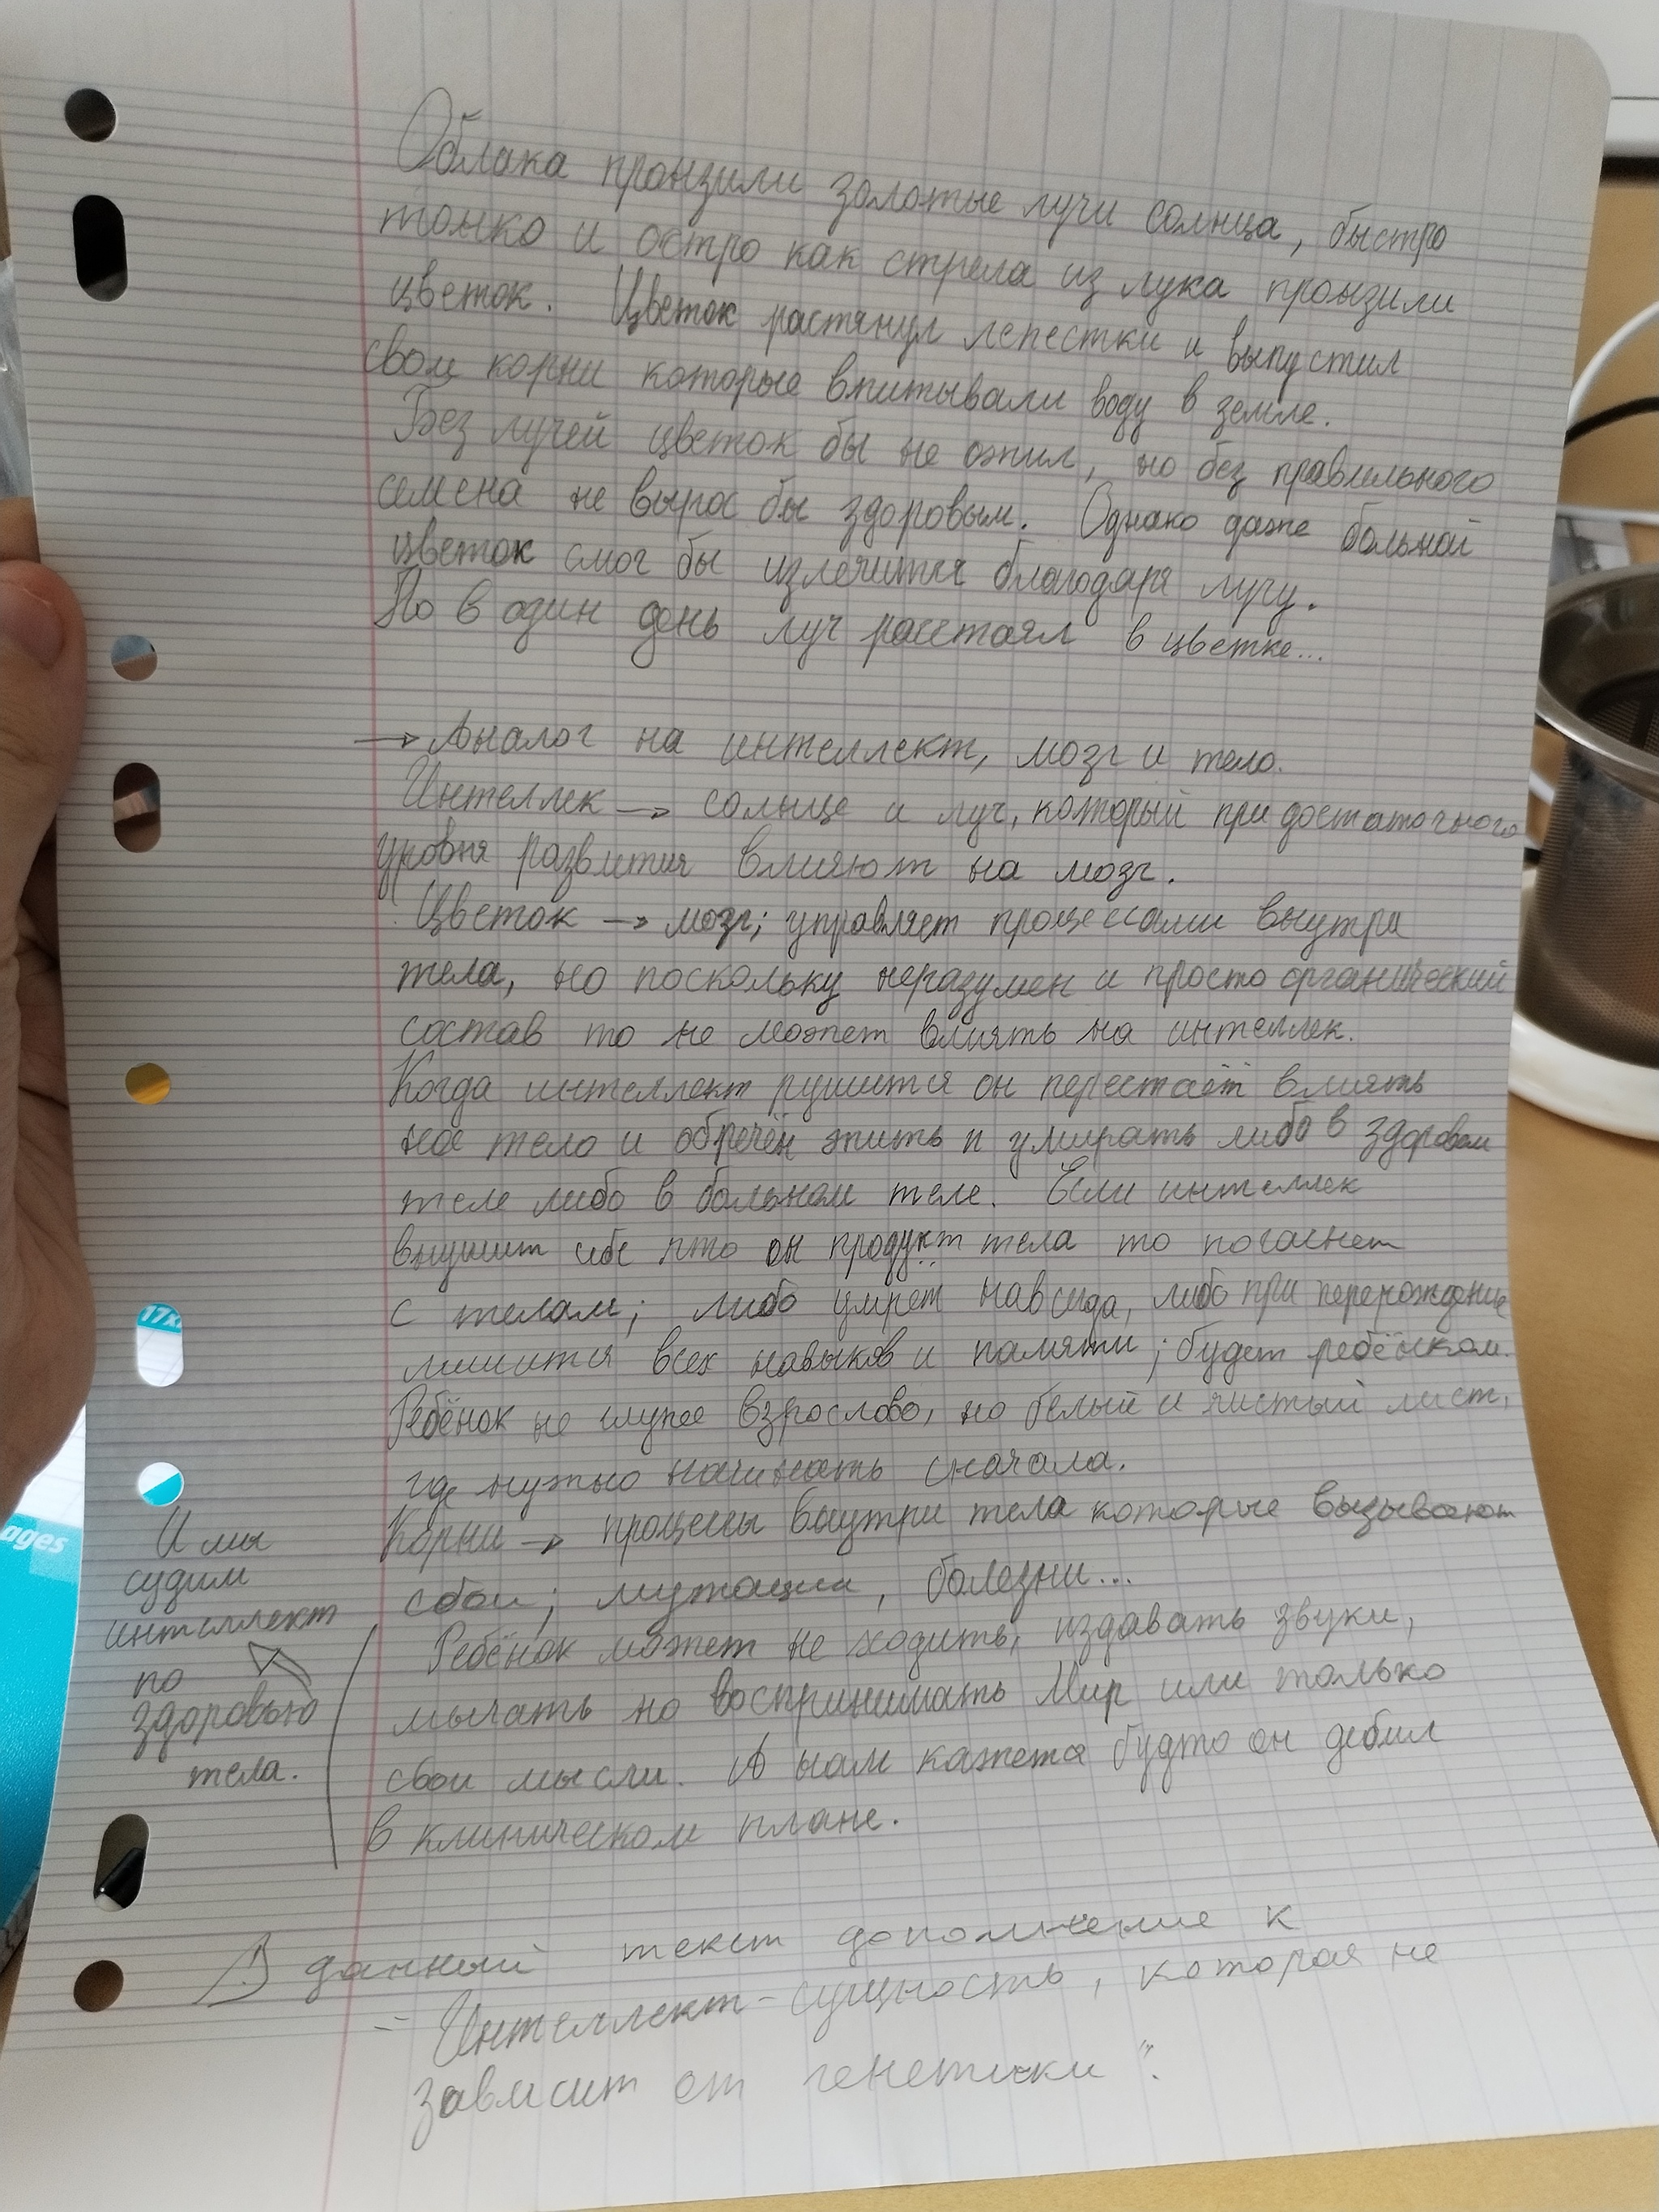 Облака пронзили золотые лучи солнца, быстро
тонко и остро как стрела из лука пронзили
цветок. Цветок растянул лепестки и выпустил
свои корни которые впитывали воду в земле.
Без лучей цветок бы не ожил, но без правильного
семена не вырос бы здоровым. Однако даже больной
цветок смог бы излечится благодаря лучу.
Но в один день луч расстаял в цветке...
→ Аналог на интеллект, мозг и тело.
Интеллек → солнце и луч, который при достаточного
уровня развития влияют на мозг.
Цветок → мозг; управляет процессами внутри
тела, но поскольку неразумен и просто органический
состав то не может влиять на интеллек.
Когда интеллект рушится он перестаёт влиять
на тело и обречён жить и умирать либо в здоровом
теле либо в больном теле. Если интеллек
внушит себе что он продукт тела то погаснет
с телом; либо умрёт навсегда, либо при перерождение
лишится всех навыков и памяти; будет ребёнком.
Ребёнок не глупее взрослово, но белый и чистый лист,
где нужно начинать сначала.
Корни → процессы внутри тела которые вызывают
сбои; мутации, болезни...
Ребёнок может не ходить, издавать звуки,
мычать но воспринимать Мир или только
свои мысли. А нам кажется будто он дебил
в клиническом плане.
И мы
судим
интеллект
по
здоровью
тела.
данный текст дополнение к
"Интеллект-сущность, которая не
зависит от генетики".
17x
ages